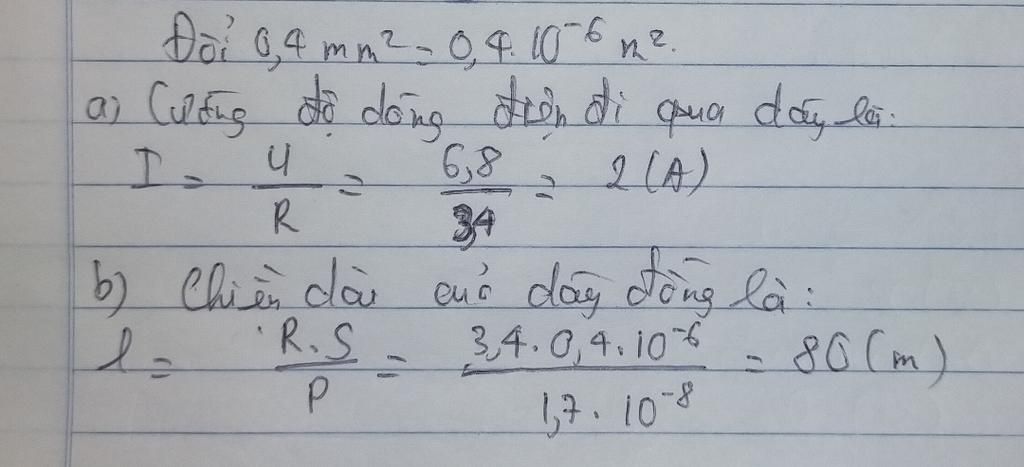 Đổi 0,4 mm² = 0,4.10⁻⁶ m².
a) Cường độ dòng điện đi qua dây là:
I = U/R = 6,8/3,4 = 2 (A)
b) Chiều dài của dây đồng là:
l = R.S/ρ = 3,4.0,4.10⁻⁶/1,7.10⁻⁸ = 80 (m)